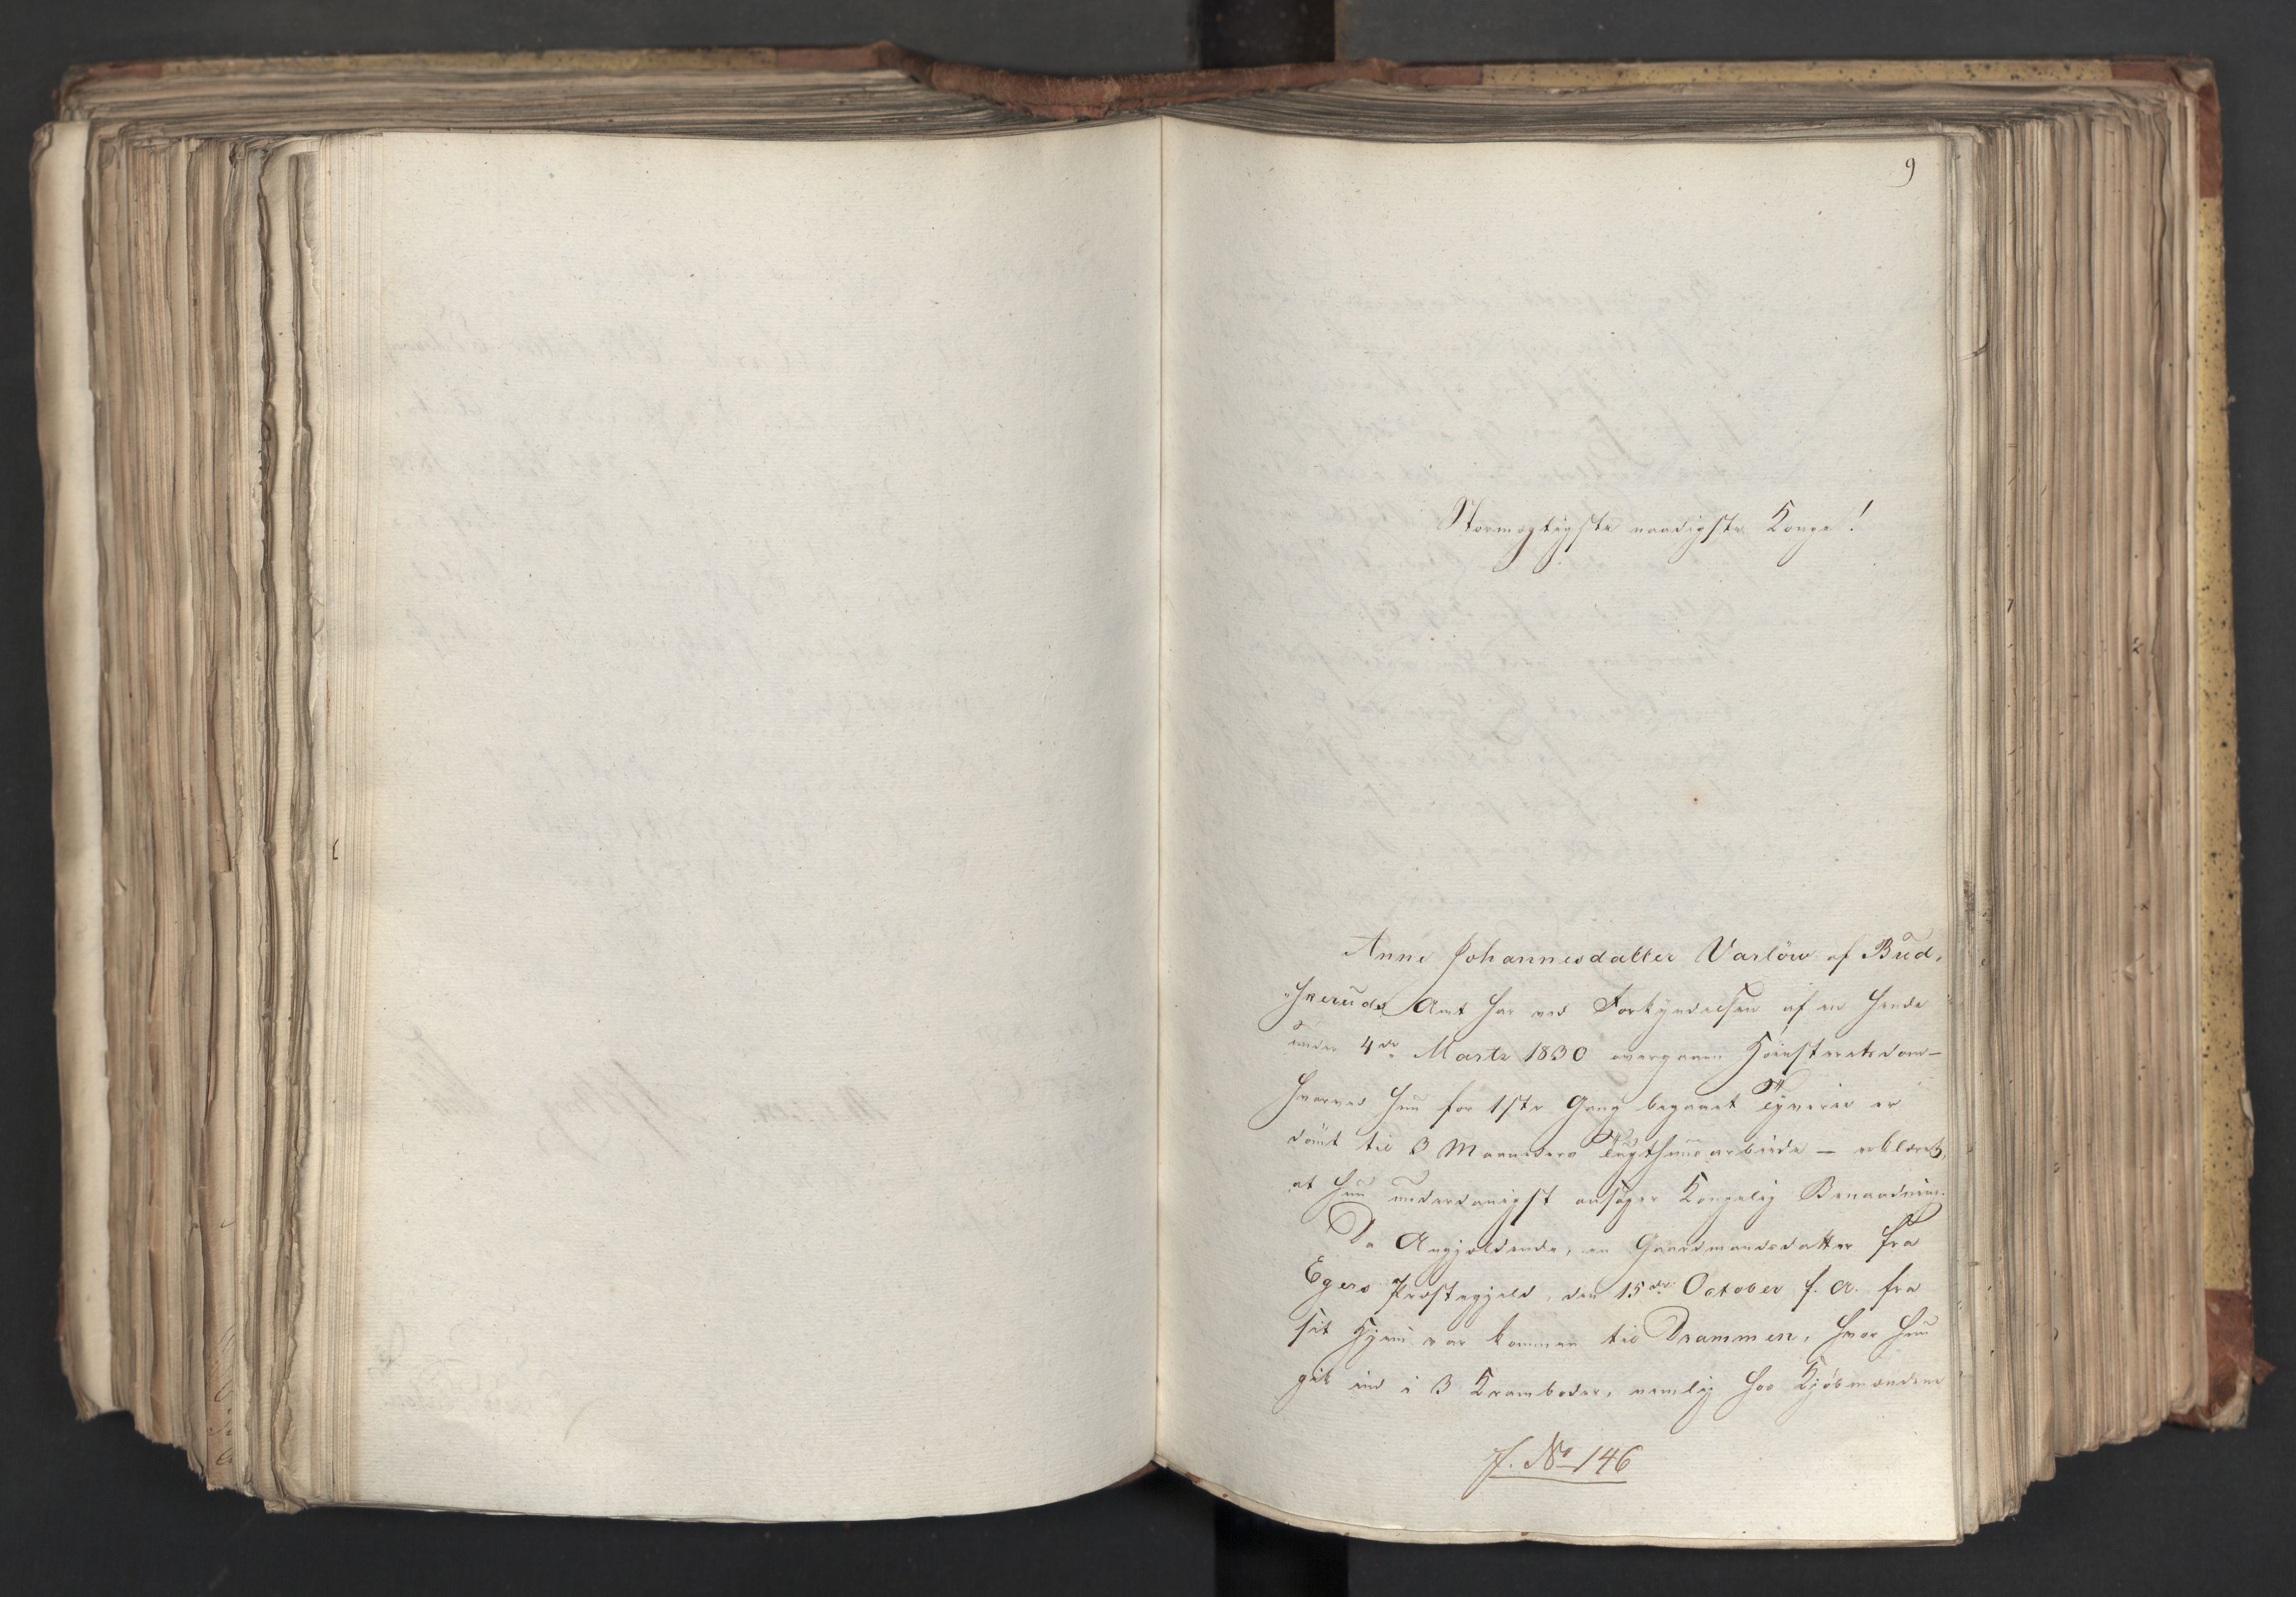 9
Stormægtigste naadigste Konge!
Anne Johannesdatter Varlöw af Bud,
"skeruds Amt har ved Forkyndelsen af en hende
under 4de Marts 1830 overgaaen Höiesteretsdom –
hvorved hun for 1ste Gang begaaet Tyverie er
dömt til 3 Maaneders Tugthuusarbeide – erklæret,
at hun underdanigst ansøger Kongelig Benaadning.
Da Angjeldende, en Gaardmandsdatter fra
Egers Præstegjeld, den 15de October f. A. fra
sit Hjem var kommen til Drammen, hvor hun
gik ind i 3 Kramboder, nemlig hos Kjøbmændene
J. No 146